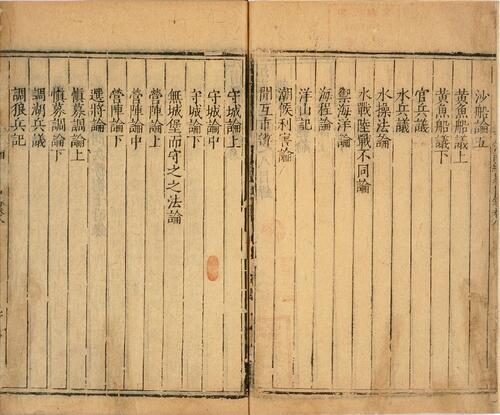 沙船論五
黃魚船議上
黃魚船議下
官兵議
水兵議
水操法論
水戰陸戰不同論
禦海洋論
海程論
洋山記
潮候利害論
開互市
守城論上
守城論中
守城論下
無城堡而守之之法論
營陣論上
營陣論中
營陣論下
選將論
慎募調論上
慎募調論下
調湖兵議
調狼兵記